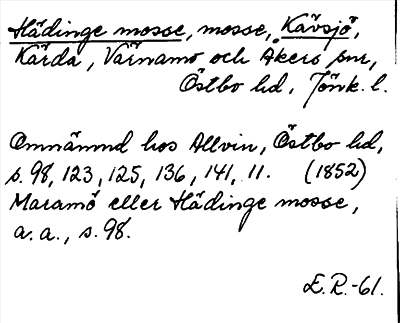 Hädinge mosse, mosse, Kävsjö,
Kärda, Värnamo och Åkers snr,
Östbo hd, Jönk. l.
Omnämnd hos Allvin, Östbo hd,
s. 98, 123, 125, 136, 141, 11. (1852)
Maramö eller Hädinge mosse,
a. a., s. 98.
E. R.-61.